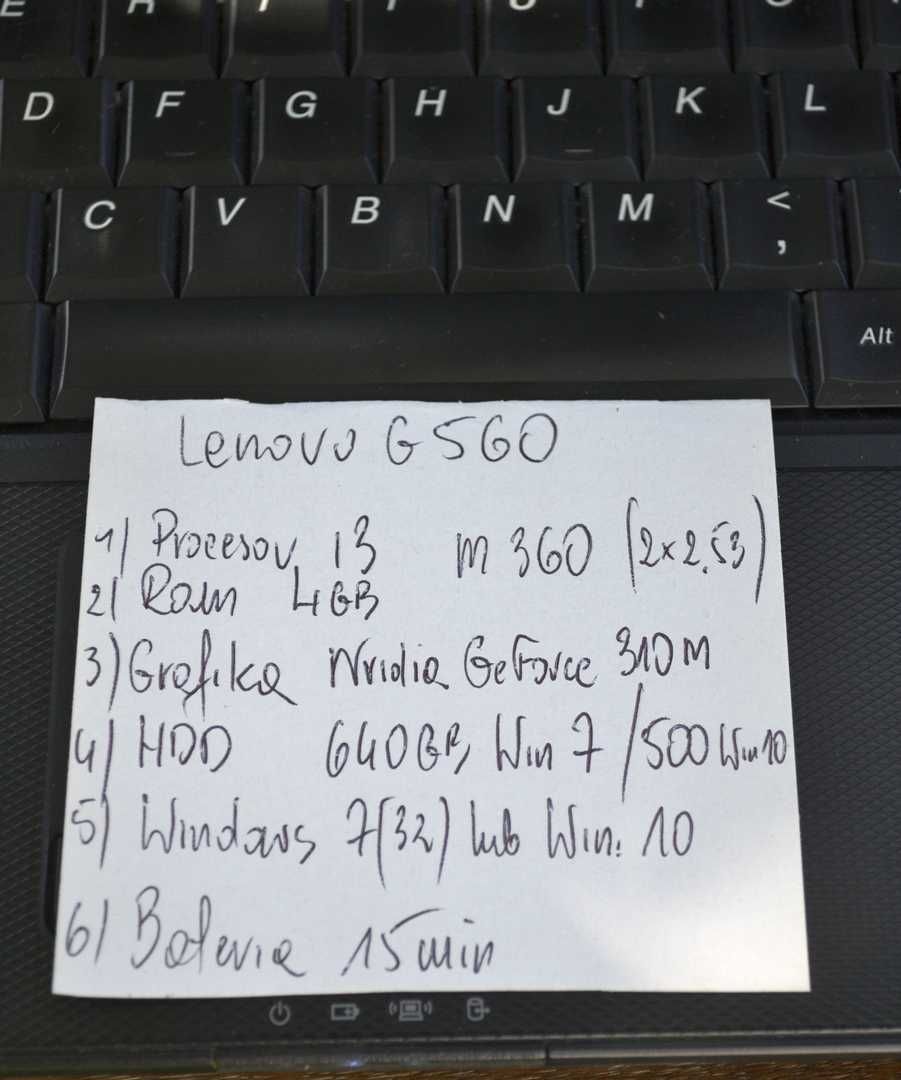 D F G H J K L
C V B N M <
,
Alt
Lenovo G560
1) Procesor i3 M 360 (2x2.53)
2) Ram 4GB
3) Grafika Nvidia GeForce 310M
4) HDD 640GB Win 7 / 500 Win 10
5) Windows 7(32) lub Win. 10
6) Bateria 15 min